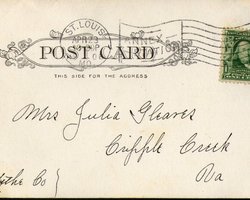 ST. LOUIS
POST CARD
THIS SIDE FOR THE ADDRESS
Mrs Julia Gleaves
Cripple Creek
Va
Co